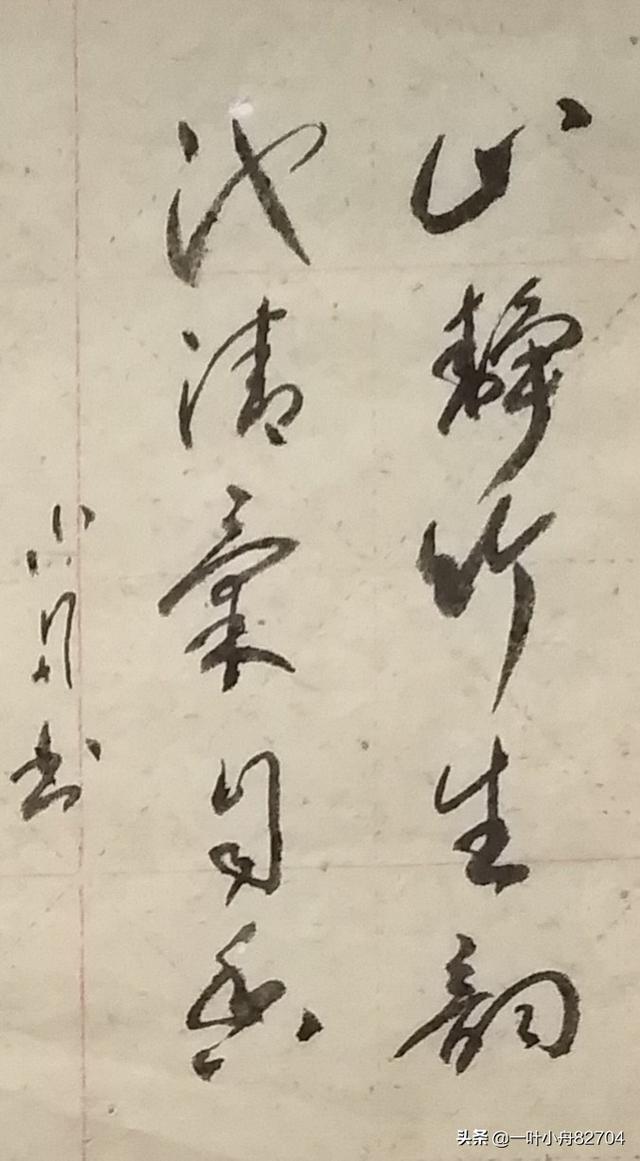 心静竹生韵
池清氣自香
小舟书
头条 @一叶小舟82704